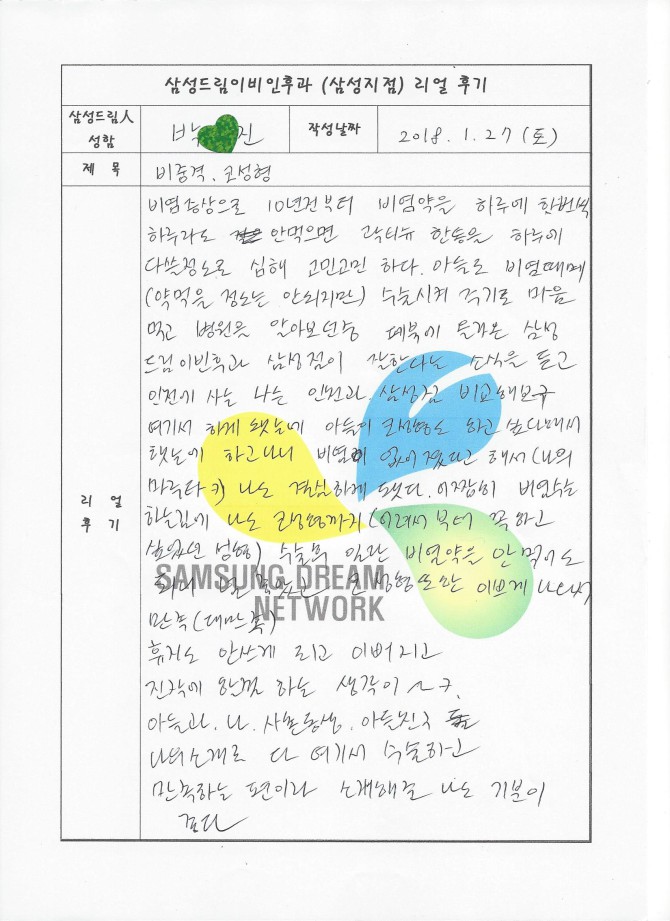 삼성드림이비인후과 (삼성지점) 리얼 후기
삼성드림人 성함
박 진
작성날짜
2018. 1. 27 (토)
제 목
비중격, 코성형
리 얼 후 기
비염증상으로 10년전부터 비염약을 하루에 한번씩
하루라도 안먹으면 곽티슈 한통을 하루에
다쓸정도로 심해 고민고민 하다. 아들도 비염때메
(약먹을 정도는 안되지만) 수술시켜 주기로 마음
먹고 병원을 알아보던중 삼성
드림이빈후과 삼성점이 잘한다는 소식을 듣고
인천에 사는 나는 인천과 삼성점 비교해보구
여기서 하게 됐는데 아들이 코성형도 하고 싶다해서
했는데 하고나니 비염이 없어졌다고 해서 (나의
마루타 ㅋ) 나도 결심하게 됐다. 어짜피 비염수술
하는김에 나도 코성형까지 (어려서부터 꼭 하고
싶었던 성형) 수술후 일단 비염약을 안먹어도
되니 너무 좋았고 코성형 또한 이쁘게 나와서
만족 (대만족)
휴지도 안쓰게 되고 이뻐지고
진작에 할껄 하는 생각이 ~ㅋ.
아들과. 나. 사촌동생. 아들친구 들
나의소개로 다 여기서 수술하고
만족하는 편이라 소개해준 나도 기분이
좋다
SAMSUNG DREAM
NETWORK